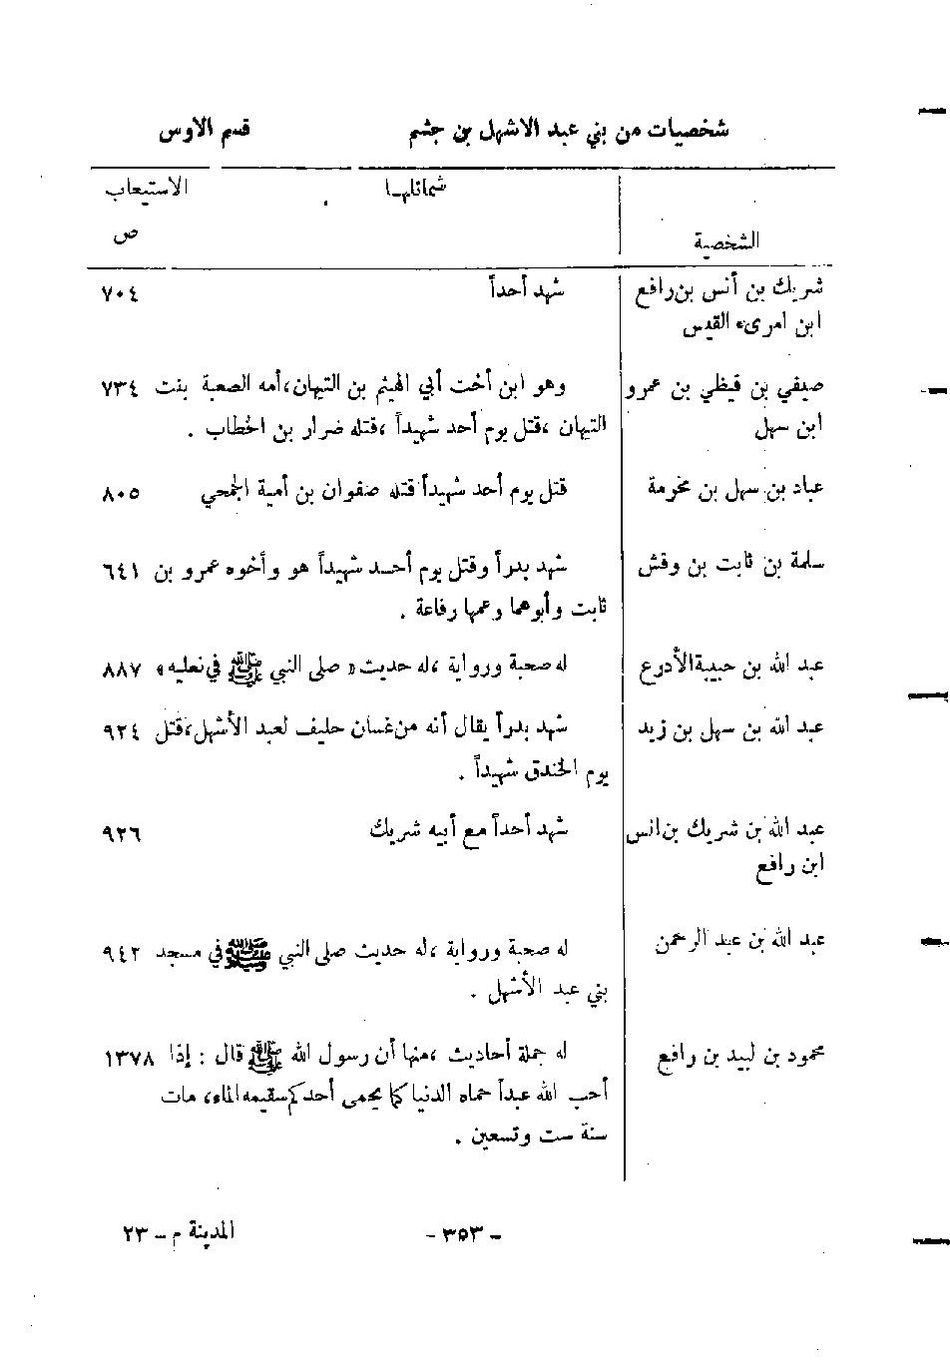 شخصيات من بني عبد الاشهل بن جشم قسم الاوس
شمائلهـا الاستيعاب
الشخصية ص
شريك بن أنس بن رافع شهد أحداً ٧٠٤
ابن امرىء القيس
صيفي بن قيظي بن عمرو وهو ابن أخت أبي الهيثم بن التيهان،أمه الصعبة بنت ٧٣٤
ابن سهل التيهان ،قتل يوم أحد شهيداً ،قتله ضرار بن الخطاب .
عباد بن سهل بن مخرمة قتل يوم أحد شهيداً قتله صفوان بن أمية الجمحي ٨٠٥
سلمة بن ثابت بن وقش شهد بدراً وقتل يوم أحـد شهيداً هو وأخوه عمرو بن ٦٤١
ثابت وأبوهما وعمها رفاعة .
عبد الله بن حبيبة الأدرع له صحبة ورواية ،له حديث « صلى النبي ﷺ في نعليه » ٨٨٧
عبد الله بن سهل بن زيد شهد بدراً يقال أنه من غسان حليف لعبد الأشهل،قتل ٩٢٤
يوم الخندق شهيداً .
عبد الله بن شريك بن انس شهد أحداً مع أبيه شريك ٩٢٦
ابن رافع
عبد الله بن عبد الرحمن له صحبة ورواية ،له حديث صلى النبي ﷺ في مسجد ٩٤٢
بني عبد الأشهل .
محمود بن لبيد بن رافع له جملة أحاديث ،منها أن رسول الله ﷺ قال : إذا ١٣٧٨
أحب الله عبداً حماه الدنيا كما يحمى أحدكم سقيمه الماء، مات
سنة ست وتسعين .
- ٣٥٣ - المدينة م - ٢٣